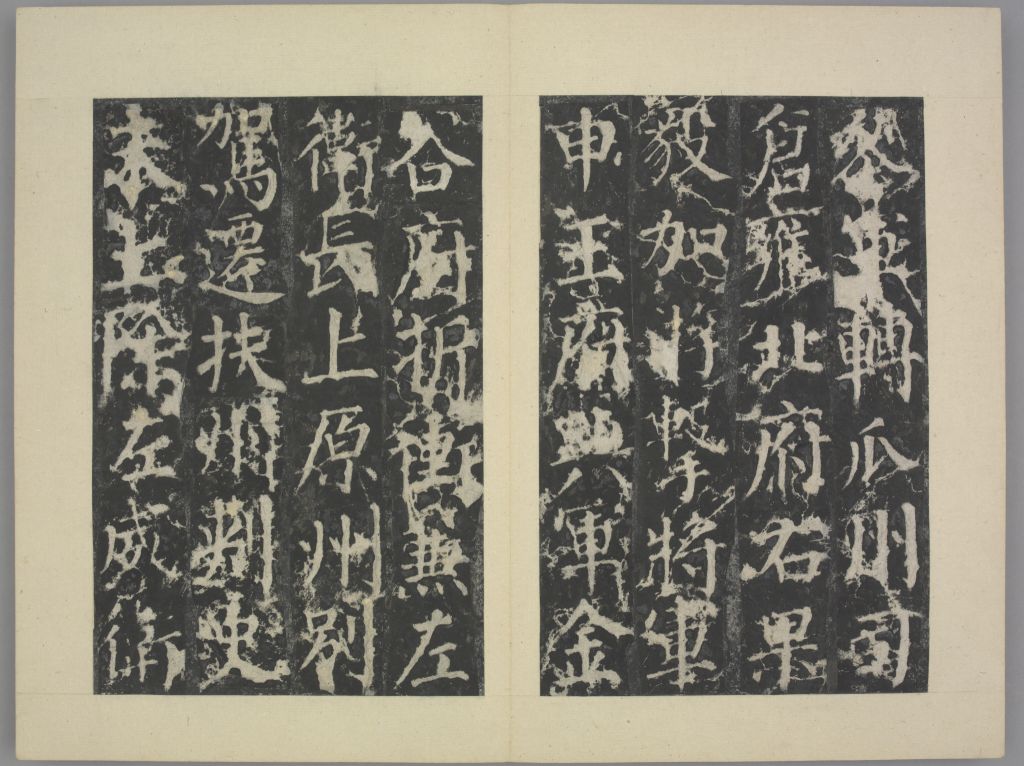 參軍轉瓜州司
倉雍北府右果
毅加游擊將軍
申王府典軍金
谷府折衝兼左
衛長上原州別
駕遷扶州刺史
未上除左威衛